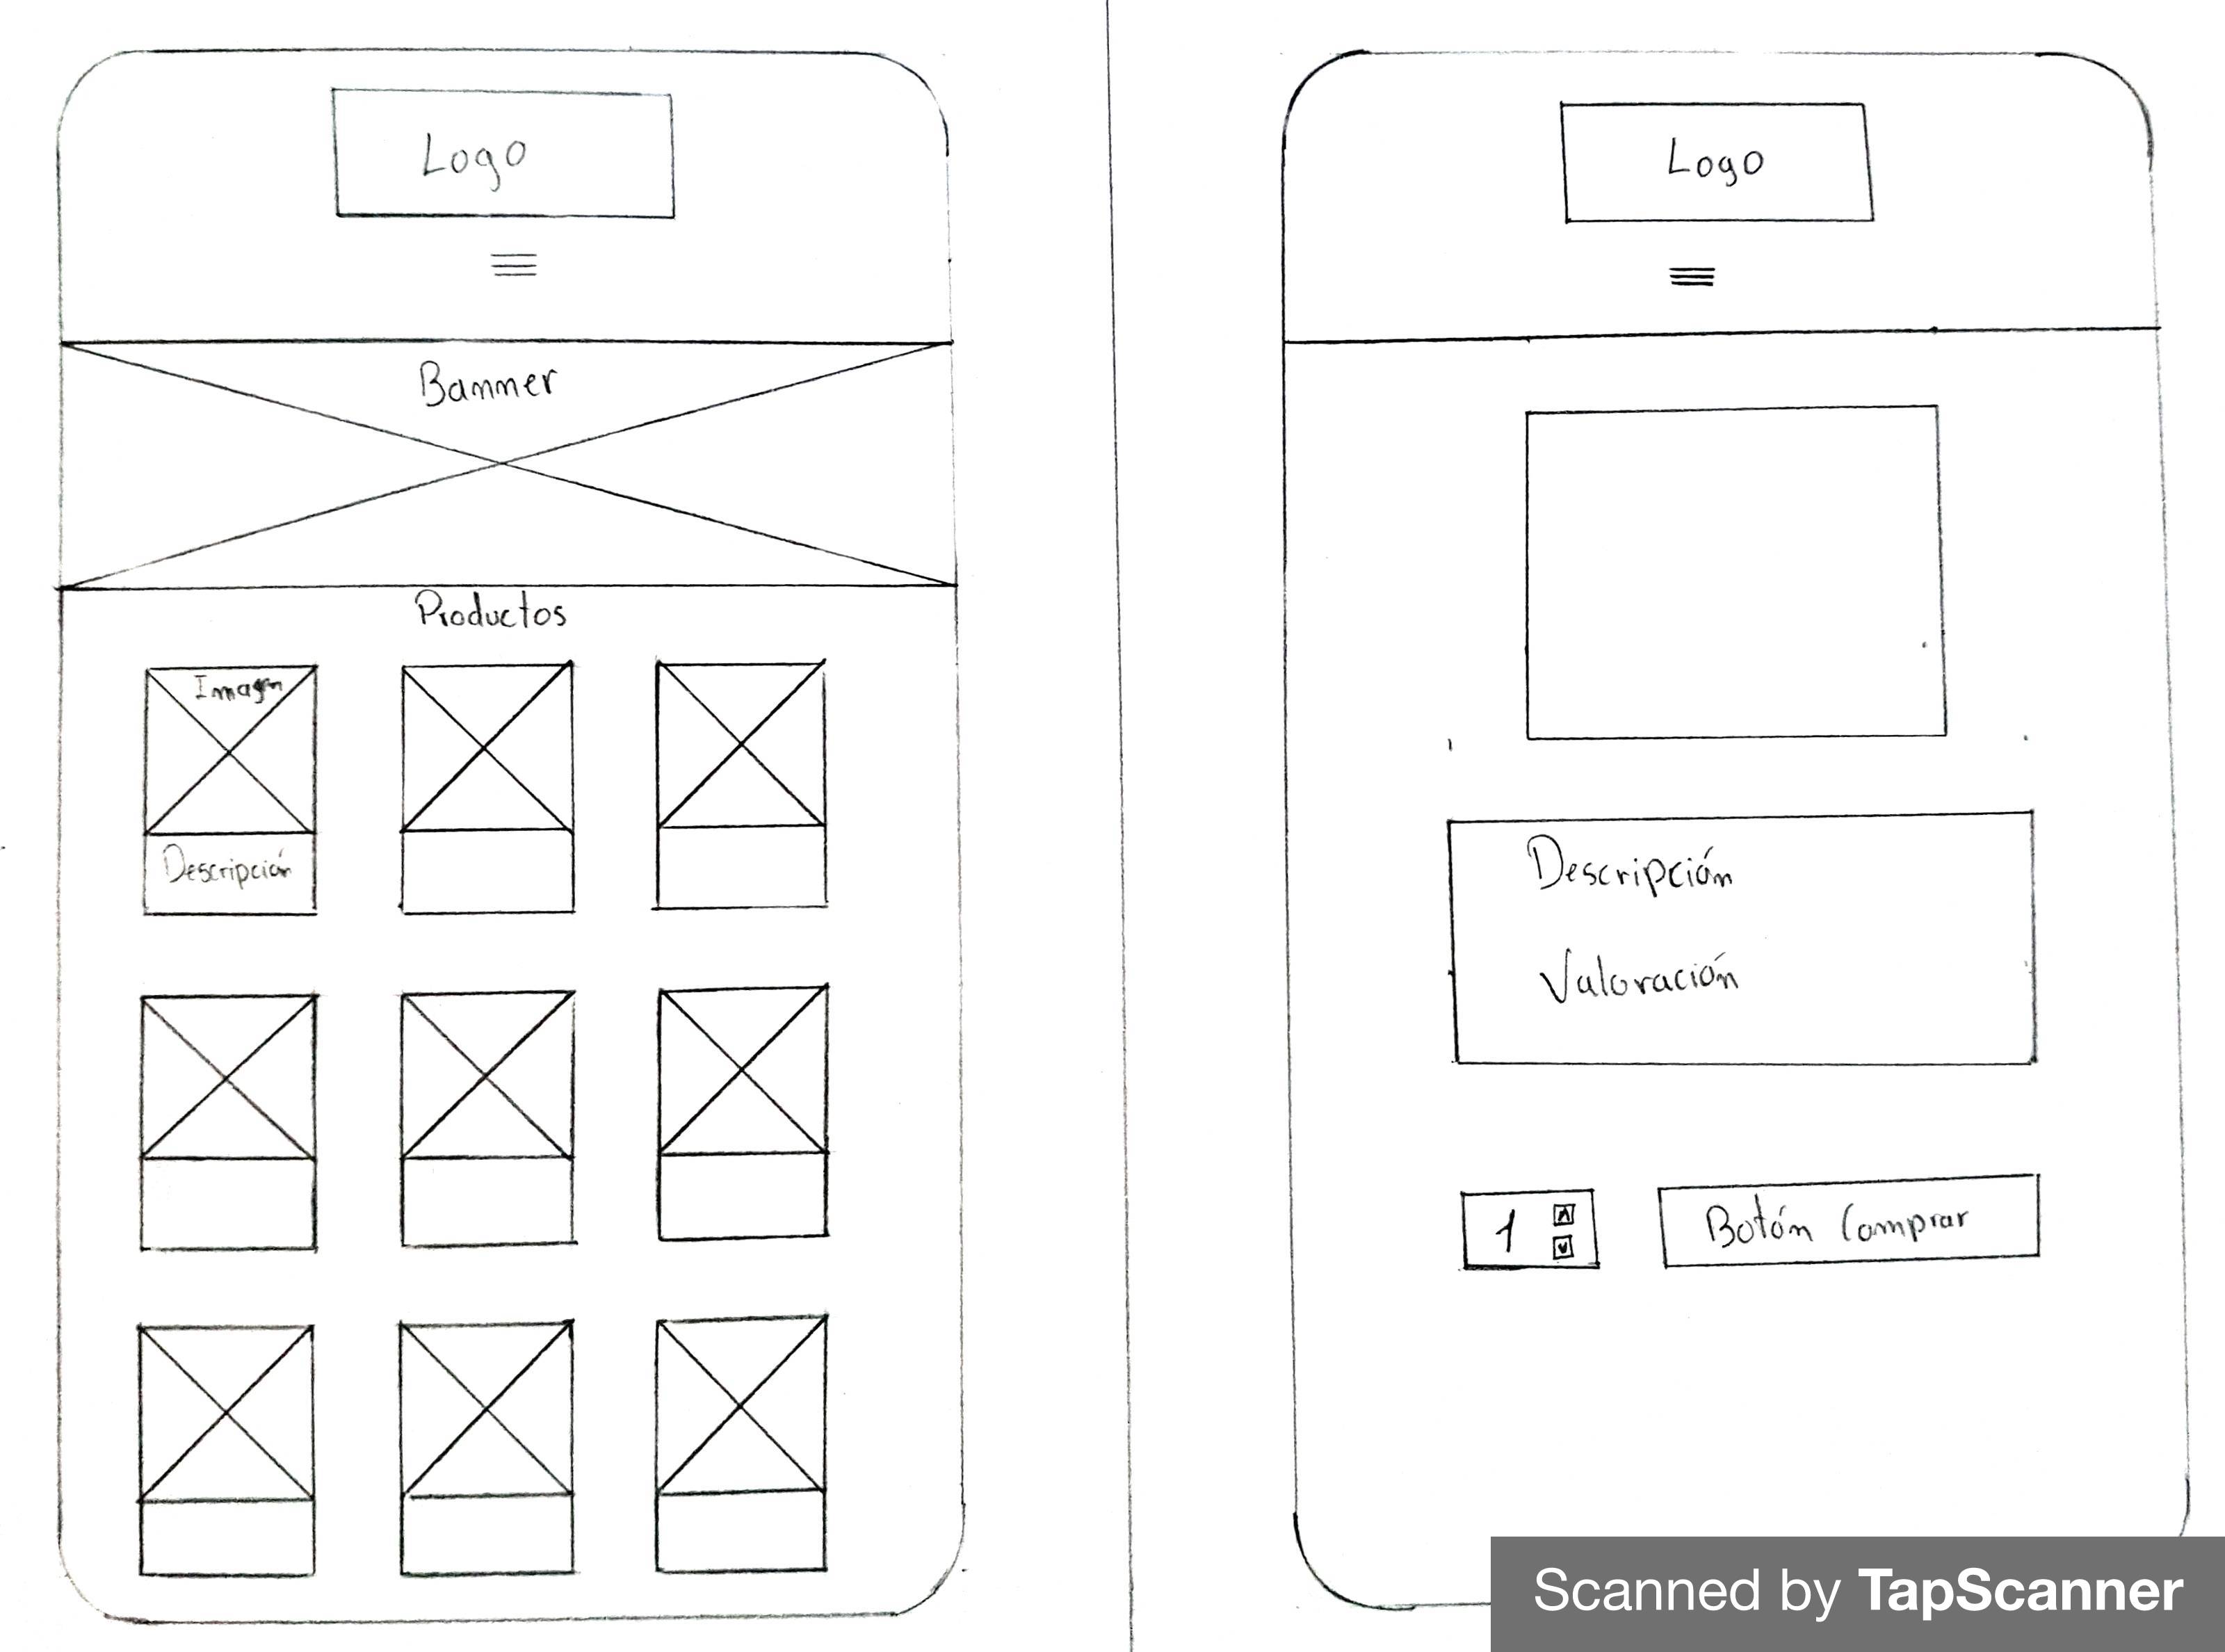 Logo
Banner
Productos
Imagen
Descripción
Logo
Descripción
Valoración
1
Botón Comprar
Scanned by TapScanner